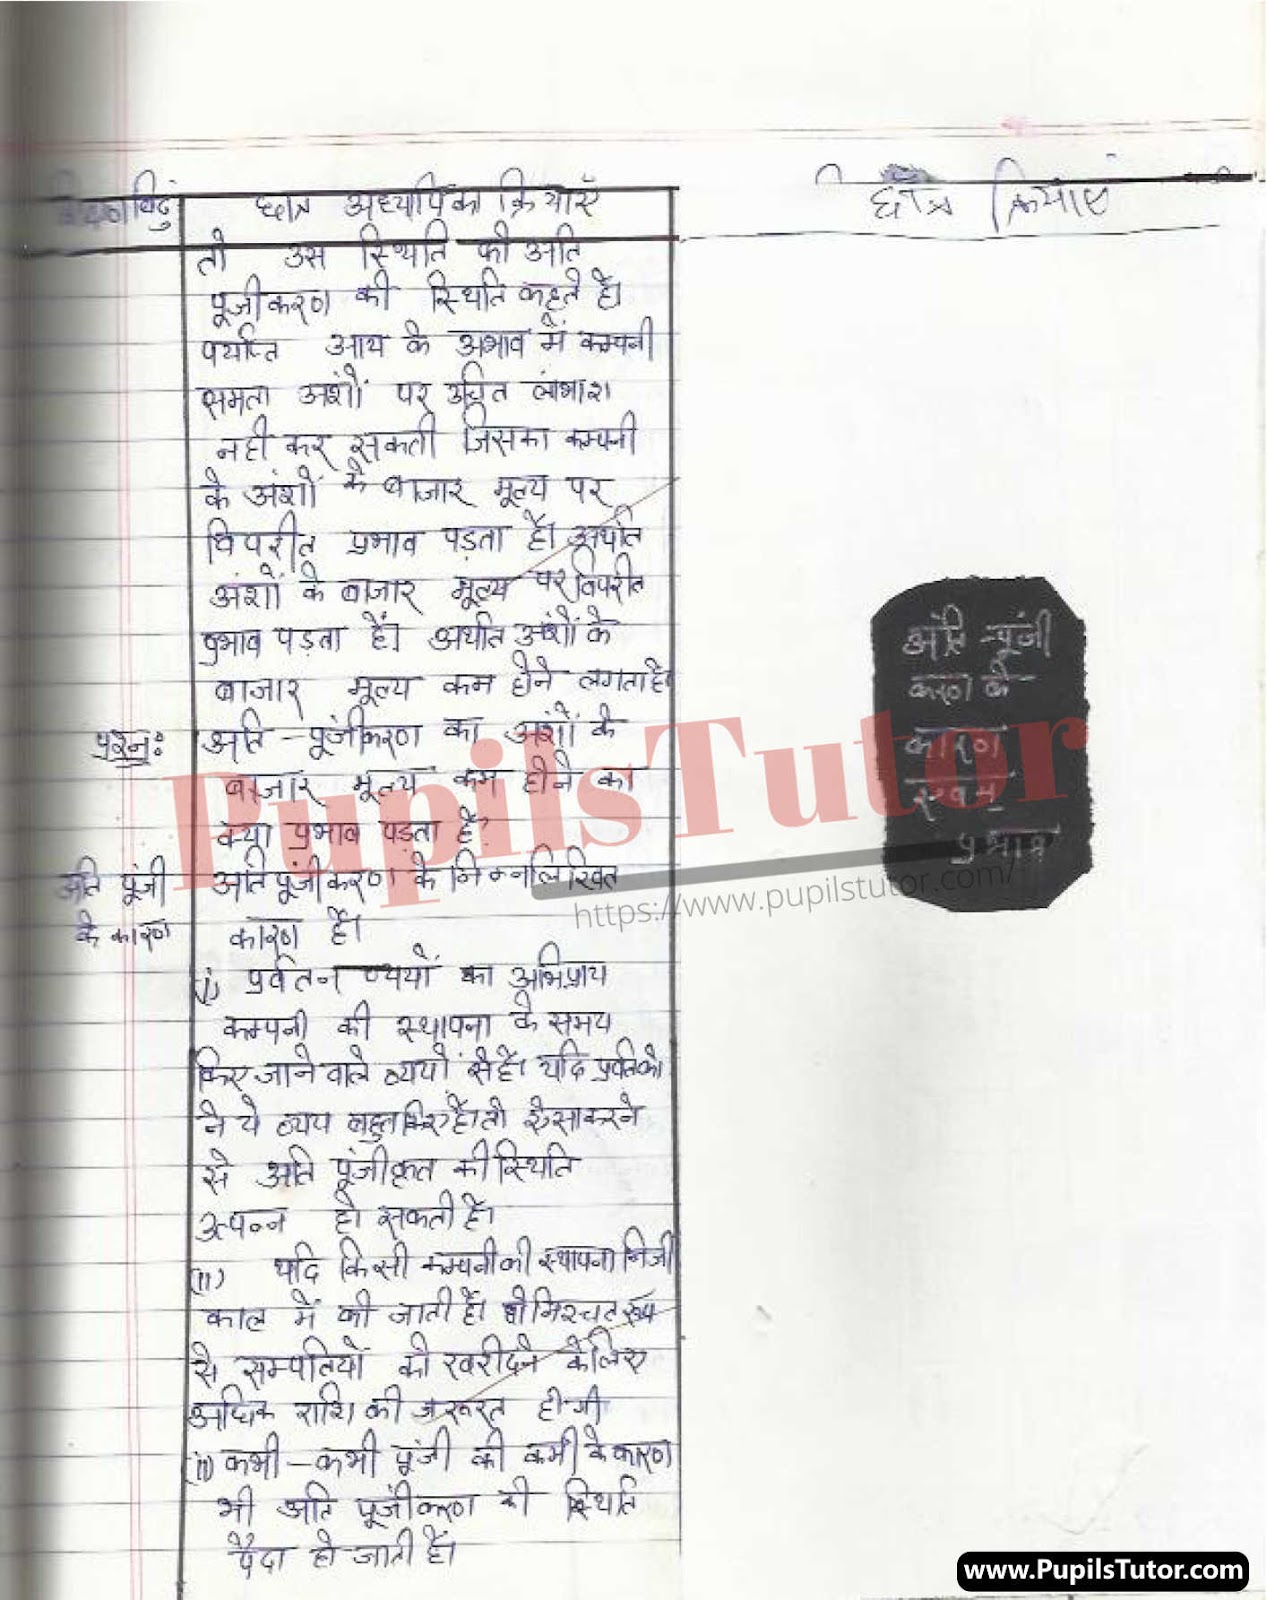 बिंदु छात्र अध्यापिका क्रियाएँ छात्र क्रियाएं
तो उस स्थिति को अति
पूंजीकरण की स्थिति कहते है।
पर्याप्त आय के अभाव में कम्पनी
समता अंशों पर उचित लाभांश
नही कर सकती जिसका कम्पनी
के अंशों के बाजार मूल्य पर
विपरीत प्रभाव पड़ता है। अर्थात
अंशों के बाजार मूल्य पर विपरीत
प्रभाव पड़ता है। अर्थात अंशों के
बाजार मूल्य कम होने लगता है।
प्रश्न: अति - पूंजीकरण का अंशों के
बाजार मूल्य कम होने का
क्या प्रभाव पड़ता है?
अति पूंजी अति पूंजीकरण के निम्नलिखित
के कारण कारण है।
(i) प्रर्वतन व्ययों का अभिप्राय
कम्पनी की स्थापना के समय
किए जाने वाले व्ययों से है। यदि प्रर्वतको
ने ये व्यय बहुत किए है। तो ऐसा करने
से अति पूंजीकृत की स्थिति
उत्पन्न हो सकती है।
(ii) यदि किसी कम्पनी की स्थापना
काल में की जाती है। तो निश्चत रूप
से सम्पतियों को खरीदने के लिए
अधिक राशि की जरूरत होगी
(ii) कभी - कभी पूंजी की कमी के कारण
भी अति पूंजीकरण की स्थिति
पैदा हो जाती है।
अति - पूंजी
करण के
कारण
एवम्
प्रभाव
PupilsTutor
https://www.pupilstutor.com/
www.PupilsTutor.com